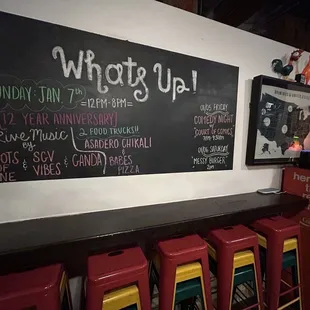 Whats Up!
SUNDAY: JAN 7th
12PM-8PM
12 YEAR ANNIVERSARY
Live Music
by
OTS
&
SCV
VIBES
2 FOOD TRUCKS!!
ASADERO CHIKALI
&
GANDA
BABES
PIZZA
FRIDAY
COMEDY NIGHT
"COUNT OF COMEDY"
SATURDAY
"MESSY BURGER"